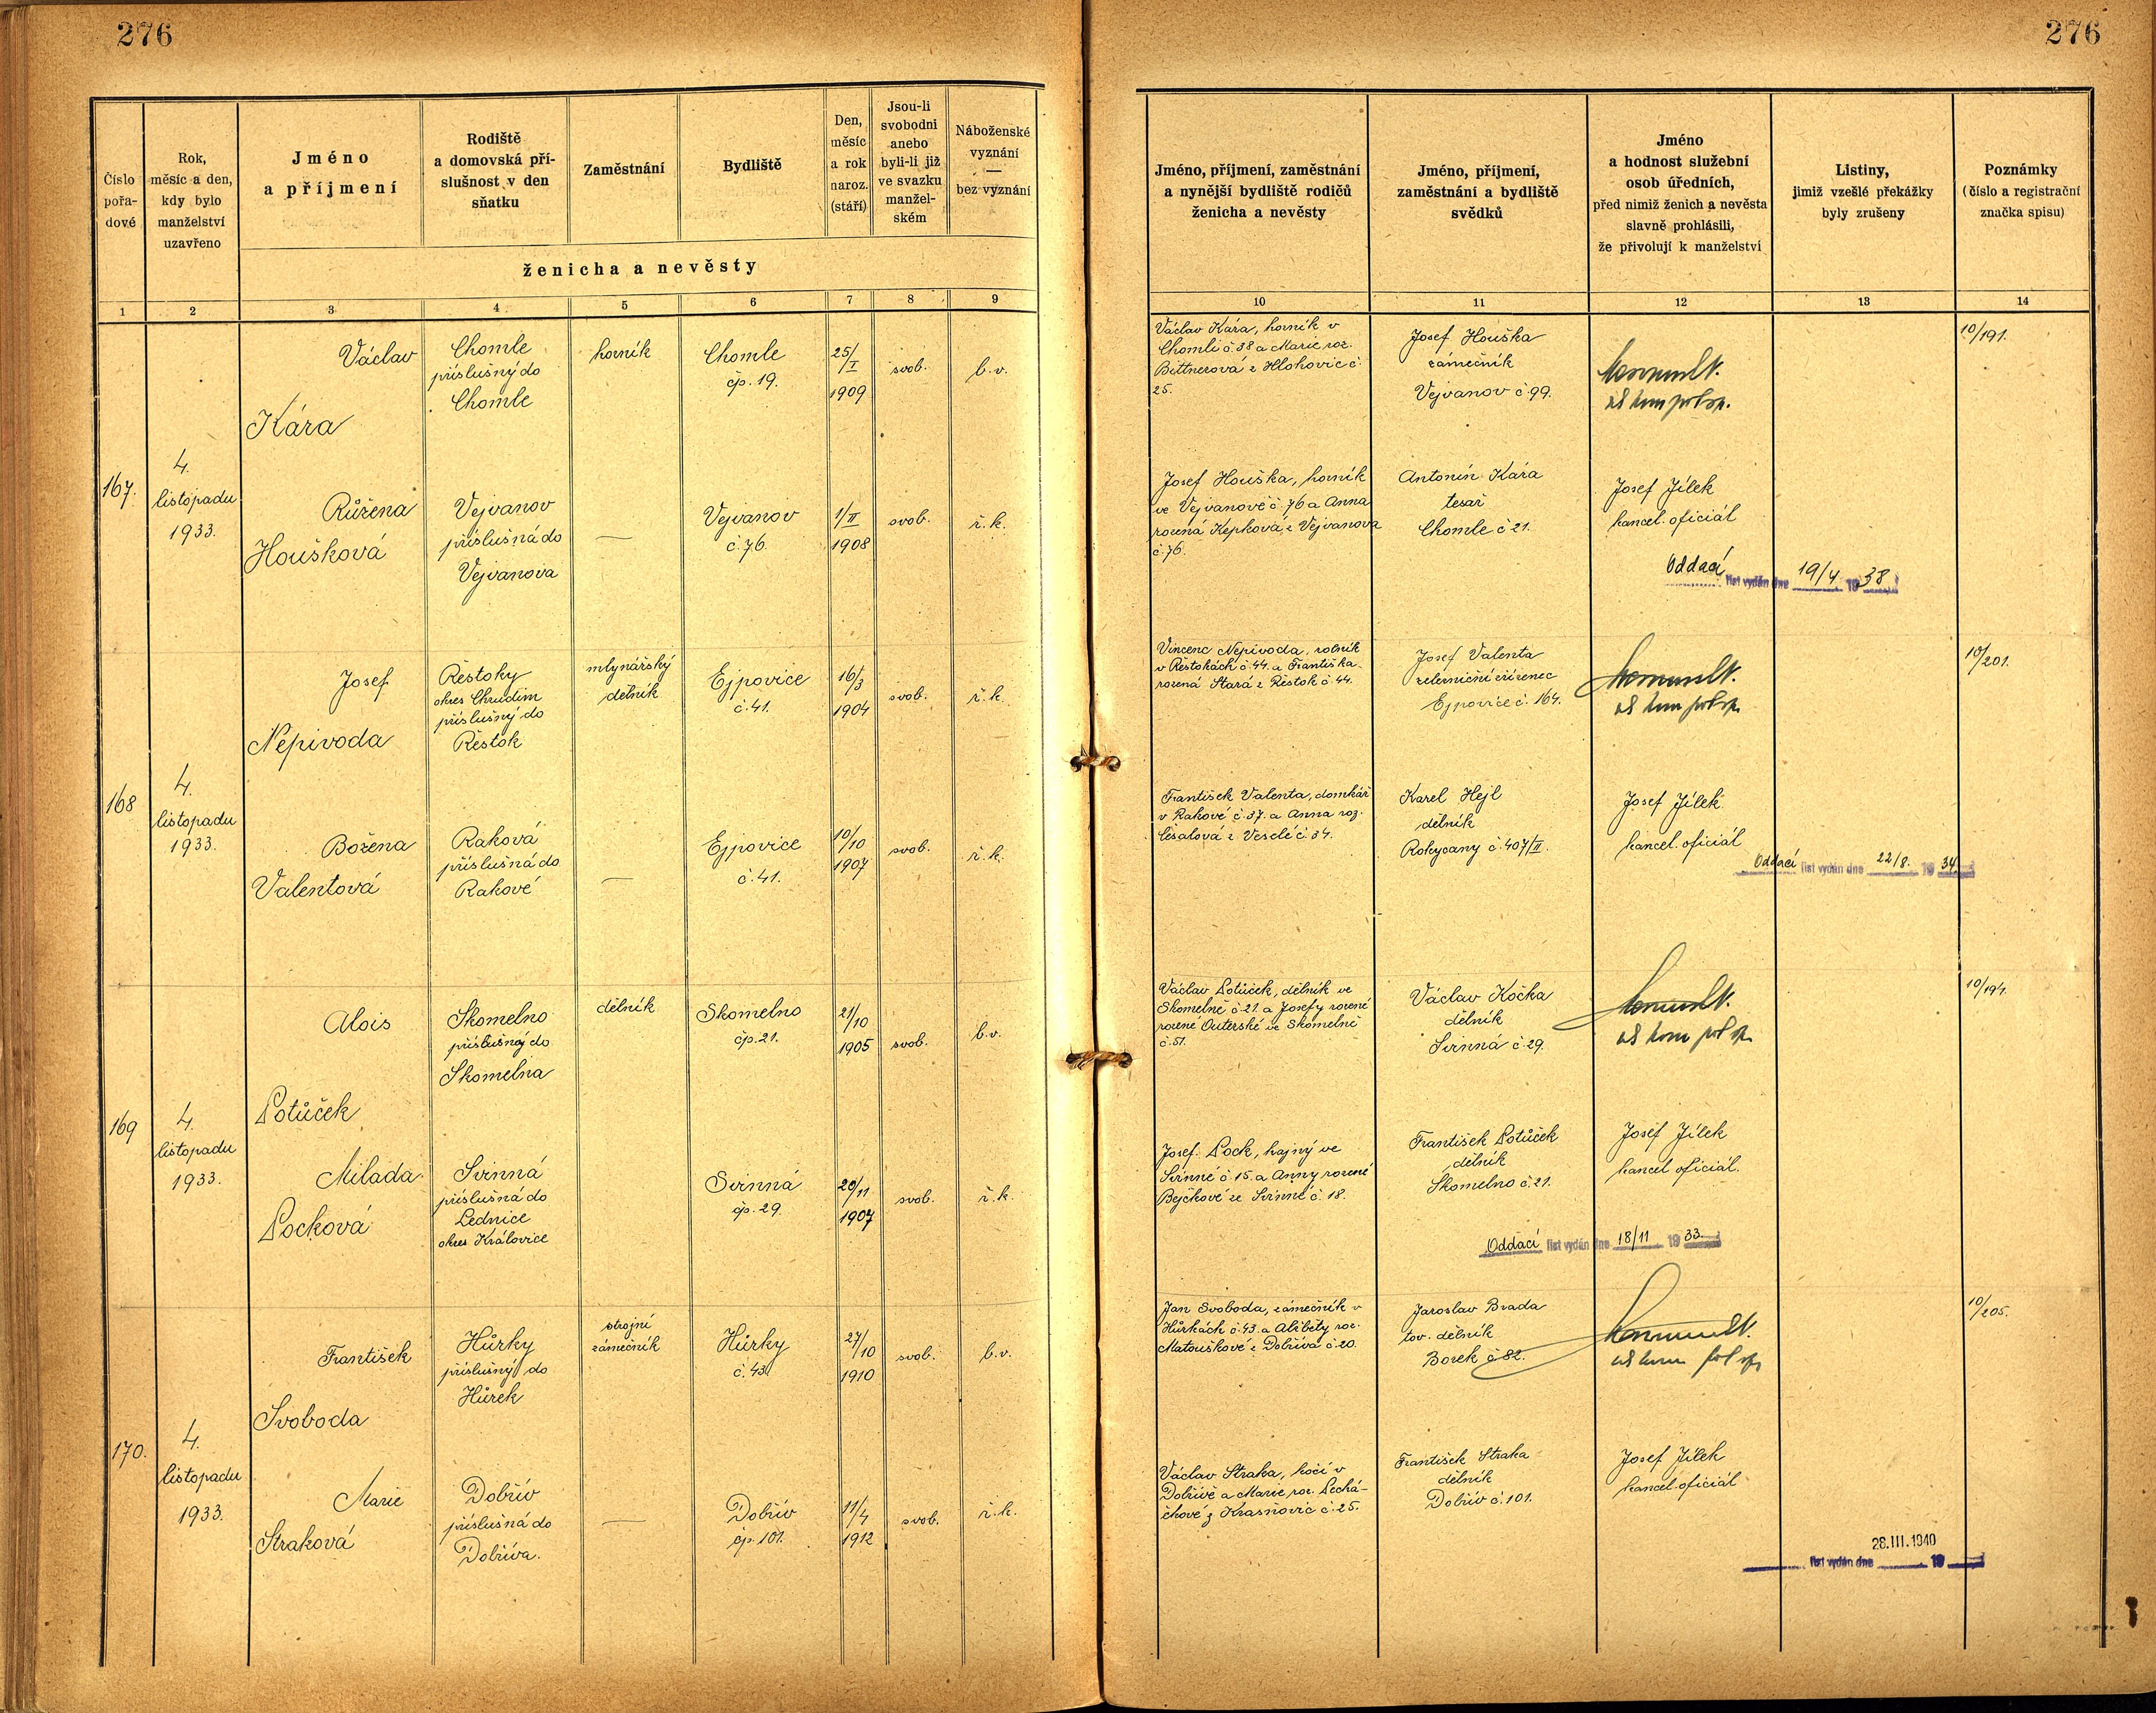 276
276
Číslo
pořa-
dové
Rok,
měsíc a den,
kdy bylo
manželství
uzavřeno
Jméno
a příjmení
Rodiště
a domovská pří-
slušnost v den
sňatku
Zaměstnání
Bydliště
Den,
měsíc
a rok
naroz.
(stáří)
Jsou-li
svobodni
anebo
byli-li již
ve svazku
manžel-
ském
Náboženské
vyznání
—
bez vyznání
ženicha a nevěsty
Jméno, příjmení, zaměstnání
a nynější bydliště rodičů
ženicha a nevěsty
Jméno, příjmení,
zaměstnání a bydliště
svědků
Jméno
a hodnost služební
osob úředních,
před nimiž ženich a nevěsta
slavně prohlásili,
že přivolují k manželství
Listiny,
jimiž vzešlé překážky
byly zrušeny
Poznámky
(číslo a registrační
značka spisu)
1 2 3 4 5 6 7 8 9 10 11 12 13 14
167.
4.
listopadu
1933.
Václav
Kára
Chomle
příslušný do
Chomle
horník
Chomle
čp. 19.
25/I
1909
svob.
b.v.
Václav Kára, horník v
Chomli č 38 a Marie roz.
Bittnerová z Hlohovic č.
25.
Josef Houška
zámečník
Vejvanov č. 99.
10/191.
Růžena
Houšková
Vejvanov
příslušná do
Vejvanova
—
Vejvanov
č. 76.
1/II
1908
svob.
ř.k.
Josef Houška, horník
ve Vejvanově č. 76 a Anna
rozená Kepková z Vejvanova
č. 76.
Antonín Kára
tesař
Chomle č 21.
Josef Jílek
kancel. oficiál
Oddací list vydán dne 19/4. 1938
168
4.
listopadu
1933.
Josef
Nepivoda
Řestoky
okres Chrudim
příslušný do
Řestok
mlynářský
dělník
Ejpovice
č. 41.
16/3
1904
svob.
ř.k.
Vincenc Nepivoda, rolník
v Řestokách č. 44. a Františka
rozená Stará z Řestok č 44.
Josef Valenta
železniční zřízenec
Ejpovice č. 164.
10/201.
Božena
Valentová
Raková
příslušná do
Rakové
—
Ejpovice
č. 41.
10/10
1907
svob.
ř.k.
František Valenta, domkář
v Rakové č. 37. a Anna roz.
z Veselé č. 34.
Karel Hejl
dělník
Rokycany č. 407/II.
Josef Jílek
kancel. oficiál
Oddací list vydán dne 22/8. 1934
169
4.
listopadu
1933.
Alois
Potůček
Skomelno
příslušný do
Skomelna
dělník
Skomelno
čp. 21.
21/10
1905
svob.
b.v.
Václav Potůček, dělník ve
Skomelně č 21. a Josefy rozené
rozené Outerské ze Skomelně
č. 51.
Václav Kočka
dělník
Svinná č. 29.
10/194.
Milada
Pocková
Svinná
příslušná do
Lednice
okres Kralovice
Svinná
čp. 29.
20/11
1907
svob.
ř.k.
Josef Pock, hajný ve
Svinné č. 15. a Anny rozené
Bejčkové ze Svinné č. 18.
František Potůček
dělník
Skomelno č. 21.
Josef Jílek
kancel oficiál.
Oddací list vydán dne 18/11 1933.
170.
4.
listopadu
1933.
František
Svoboda
Hůrky
příslušný do
Hůrek
strojní
zámečník
Hůrky
č. 43
27/10
1910
svob.
b.v.
Jan Svoboda, zámečník v
Hůrkách č. 43. a Alžběty roz.
Matouškové z Dobříva č. 20.
Jaroslav Brada
tov. dělník
Borek č 82.
10/205.
Marie
Straková
Dobřív
příslušná do
Dobříva.
—
Dobřív
čp. 101.
11/4
1912
svob.
ř.k.
Václav Straka, kočí v
Dobřívě a Marie roz. Pechá-
čkové z Krašňovic č. 25.
František Straka
dělník
Dobřív č. 101.
Josef Jílek
kancel. oficiál
28.III.1940
list vydán dne 19